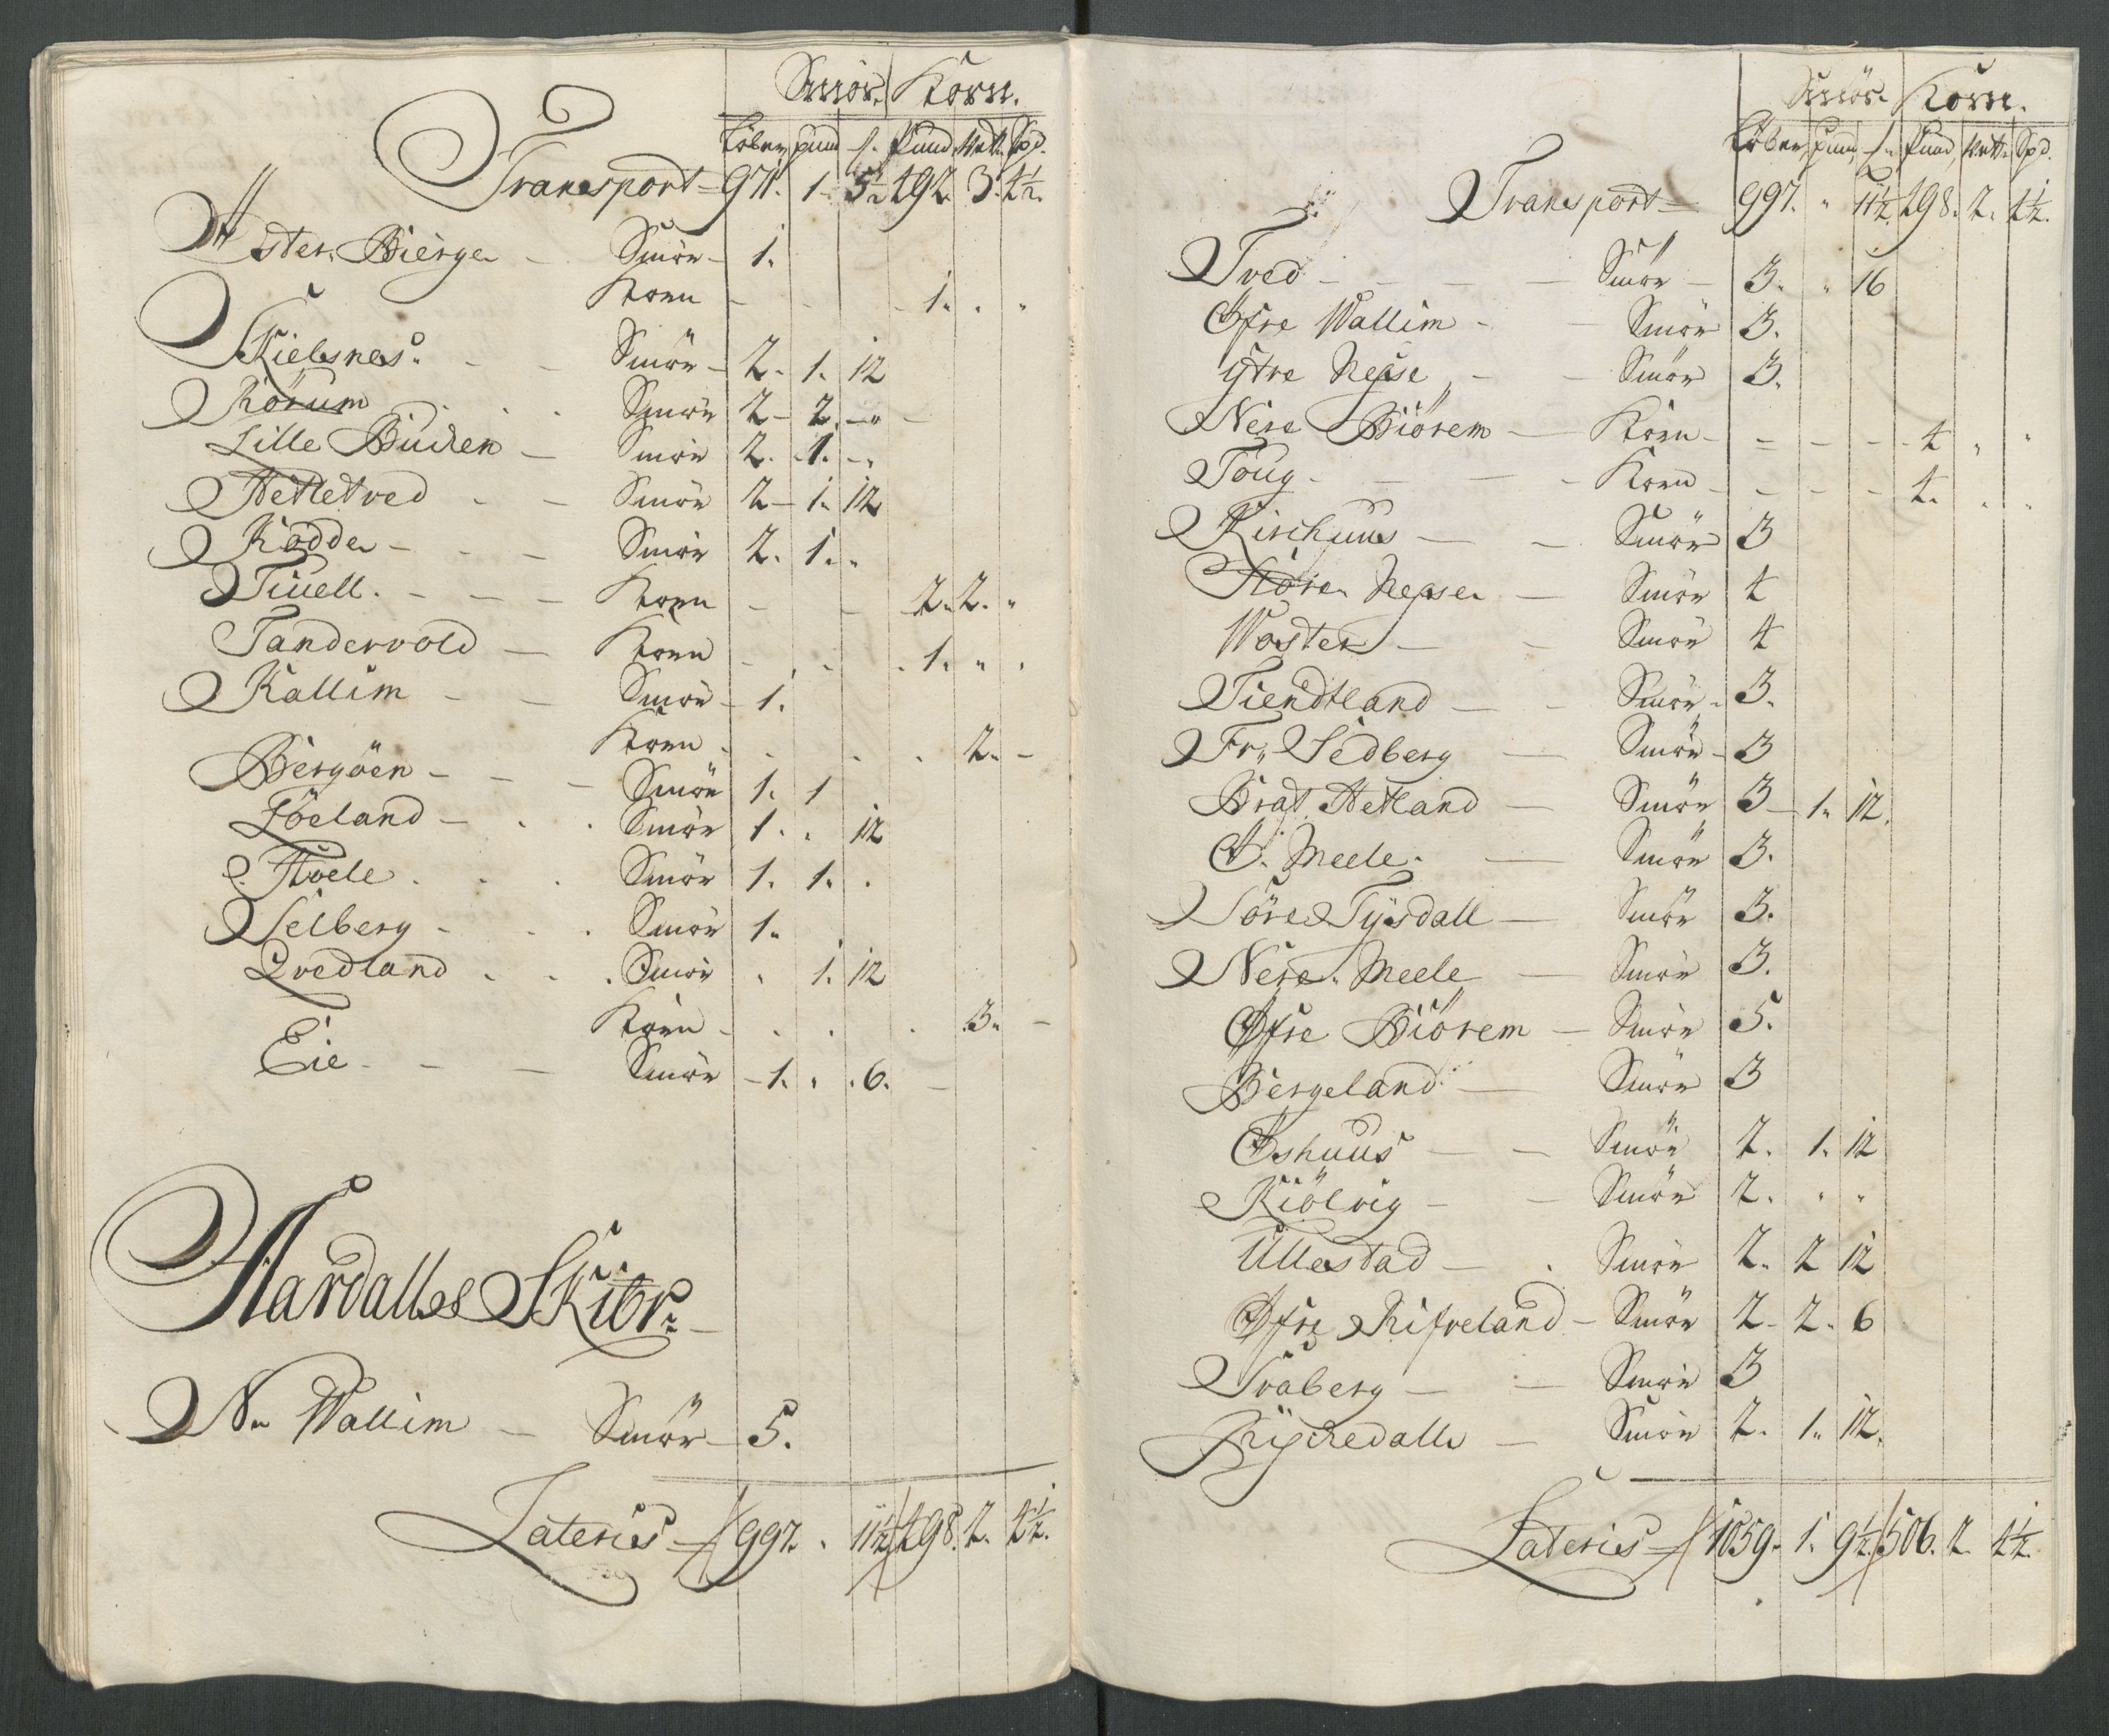 Smör. Korn.
Löber pund ℔. Pund Vett. Spd.
Transport 971. 1. 5½ 492. 3. 4½.
Øster Bierge Smör 1.
Korn 1. " "
Skielsnes Smör 2. 1. 12
Rörum Smör 2 2. "
Lille Buden Smör 2. 1. "
Hetletved Smör 2 1. 12
Rödde Smör 2. 1. "
Tuuell Korn 2. 2. "
Tandervold Korn 1. " "
Kallim Smör 1.
Korn 2.
Bergöen Smör 1. 1
Föeland Smör 1. " 12
Hoele Smör 1. 1.
Selberg Smör 1.
Qvedland Smör " 1. 12
Korn 3.
Eie Smör 1. " 6.
Aardalls Skibr.
N. Wallim Smör 5.
Lateris 997. " 11½ 498. 2. 4½.
Smör. Korn.
Löber pund ℔. Pund Vett. Spd.
Transport 997. " 11½ 498. 2. 4½.
Tved Smör 3. " 16
Øfre Wallim Smör 3.
Ytre Nepse Smör 3.
Nere Biörem Korn 4 " "
Toug Korn 4. " "
Kirchuus Smör 3
Störe Nepse Smör 4
Woster Smör 4
Tiendtland Smör 3.
Fr. Sedberg Smör 3
Brat Hetland Smör 3 1. 12.
Ø. Meele Smör 3.
Söre Tysdall Smör 3.
Nere Meele Smör 3.
Øfre Biörem Smör 5.
Bergeland Smör 3
Øshuus Smör 2. 1. 12
Kiölvig Smör 2. " "
Ullestad Smör 2. 2 12
Øfre Rifveland Smör 2 2. 6
Traberg Smör 3
Rischedall Smör 2. 1. 12.
Lateris 1059. 1. 9½. 506. 2. 4½.